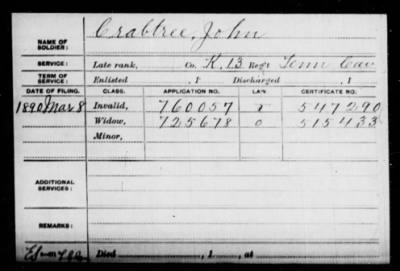 NAME OF SOLDIER: Crabtree, John
SERVICE: Late rank, Co. K, 13 Reg't Tenn Cav
TERM OF SERVICE: Enlisted , 1 Discharged , 1
DATE OF FILING. CLASS. APPLICATION NO. LAW. CERTIFICATE NO.
1890 Mar 8 Invalid, 760057 547290
Widow, 725678 515433
Minor,
ADDITIONAL SERVICES:
REMARKS:
Died , 1 , at